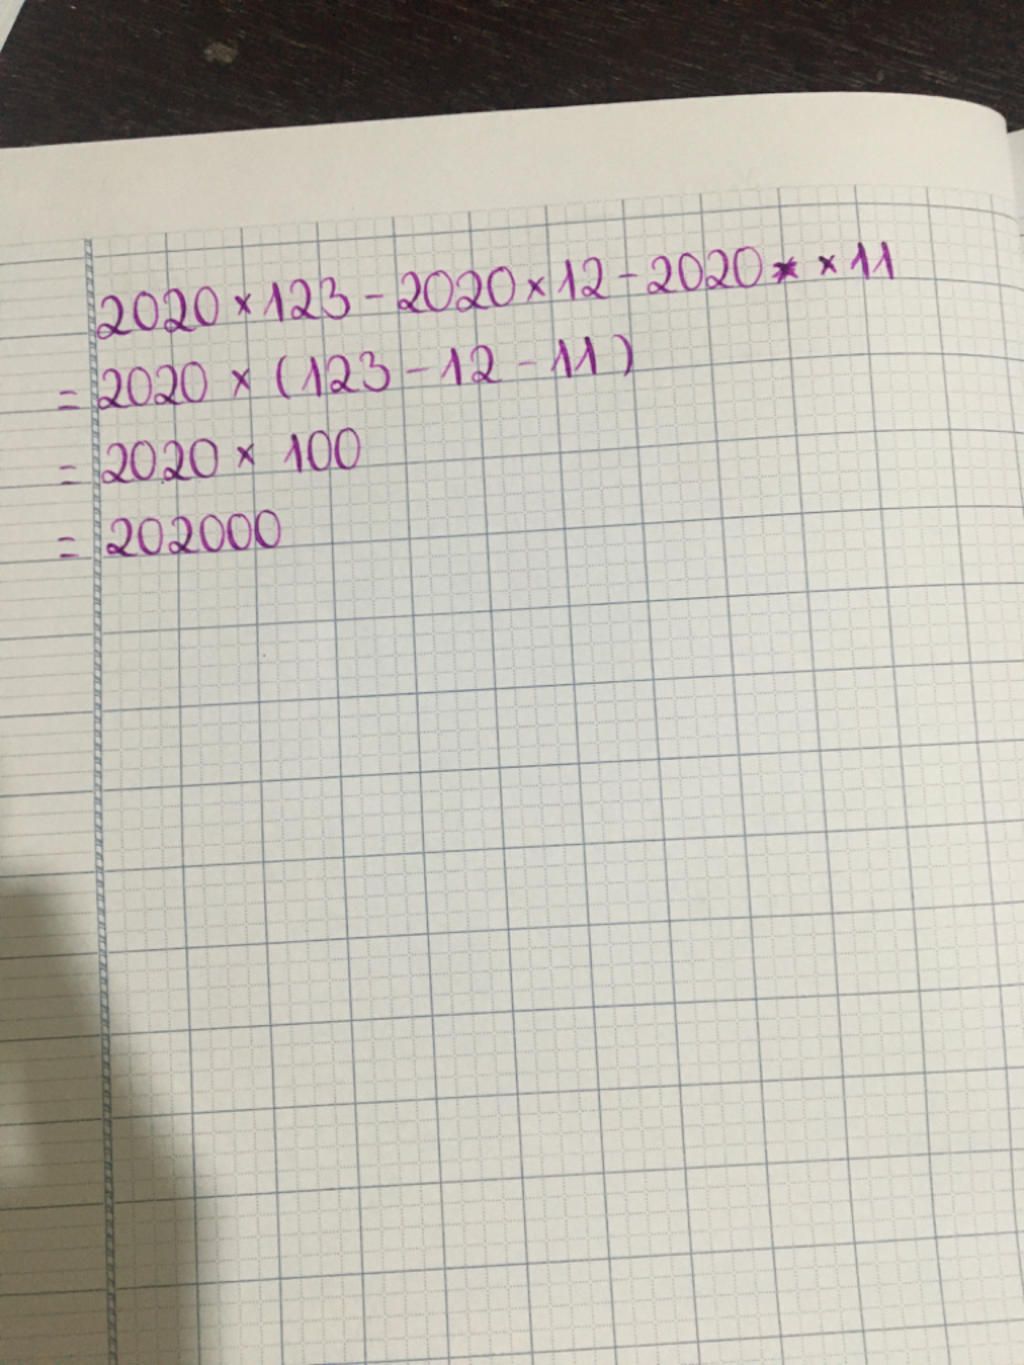 2020 × 123 - 2020 × 12 - 2020 × × 11
= 2020 × (123 - 12 - 11)
= 2020 × 100
= 202000